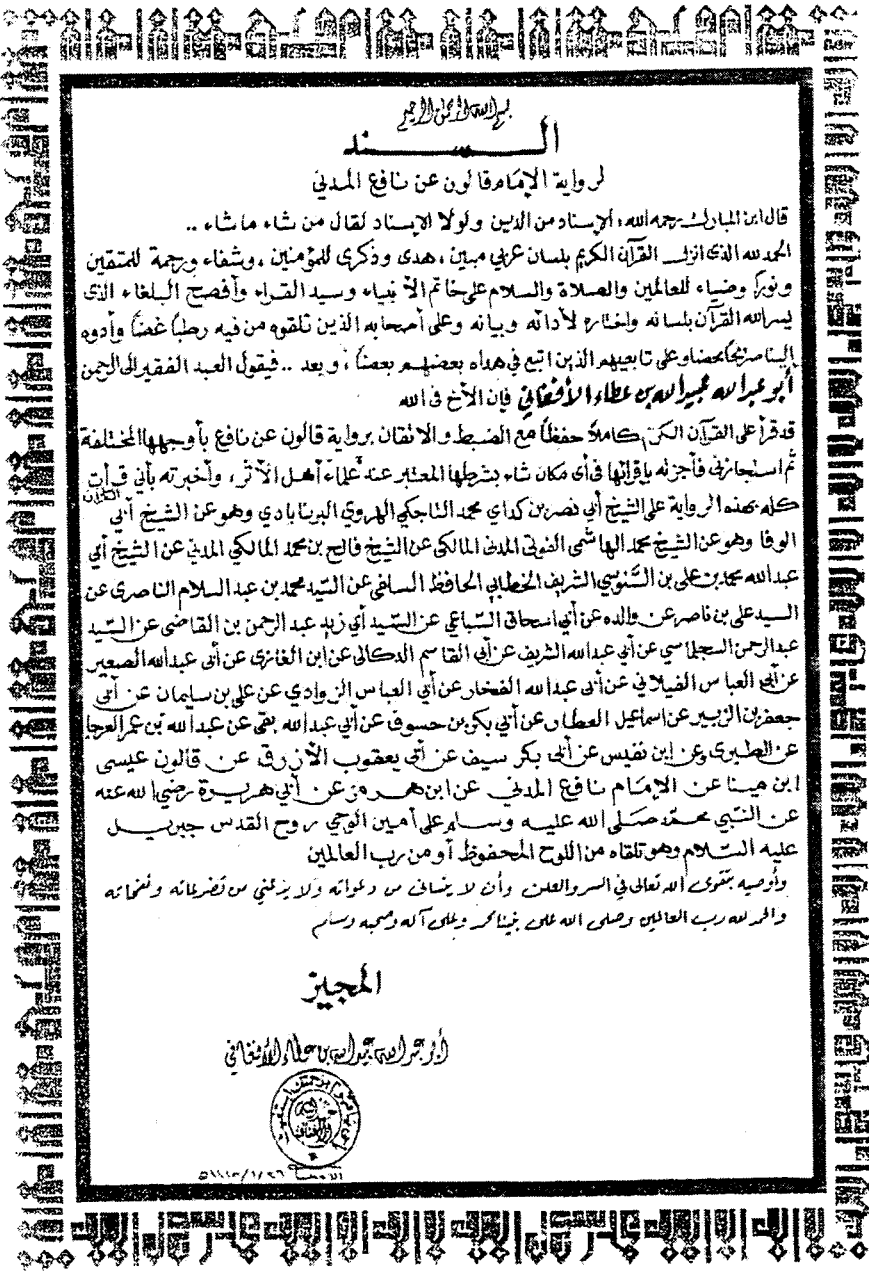 بسم الله الرحمن الرحيم
السند
لرواية الإمام قالون عن نافع المدني
قال ابن المبارك رحمه الله: الإسناد من الدين ولولا الإسناد لقال من شاء ما شاء ..
الحمد لله الذي أنزل القرآن الكريم بلسان عربي مبين، هدى وذكرى للمؤمنين، وشفاء ورحمة للمتقين
ونوراً وضياء للعالمين والصلاة والسلام على خاتم الأنبياء وسيد القراء وأفصح البلغاء الذي
يسر الله القرآن بلسانه واختاره لأدائه وبيانه وعلى أصحابه الذين تلقوه من فيه رطباً غضاً وأدوه
إلينا صريحاً محضاً وعلى تابعيهم الذين اتبع في هداه بعضهم بعضاً، وبعد .. فيقول العبد الفقير الى الرحمن
أبو عبد الله عبيد الله بن عطاء الأفغاني فإن الأخ في الله
قد قرأ علي القرآن الكريم كاملاً حفظاً مع الضبط والاتقان برواية قالون عن نافع بأوجهها المختلفة
ثم استجازني فأجزته بإقرائها في أي مكان شاء بشرطها المعتبر عند علماء أهل الأثر، وأخبرته بأني قرأت القرآن
كله بهذه الرواية على الشيخ أبي نصر بن كداي محمد التاجكي الهروي البرنابادي وهو عن الشيخ أبي
الوفا وهو عن الشيخ محمد الهاشمى الفوتى المدني المالكي عن الشيخ فالح بن محمد المالكي المدني عن الشيخ أبي
عبد الله محمد بن على بن السنوسي الشريف الخطابي الحافظ السلفى عن السيد محمد بن عبد السلام الناصرى عن
السيد على بن ناصر عن والده عن أبي اسحاق السباعي عن السيد أبي زيد عبد الرحمن بن القاضى عن السيد
عبد الرحمن السجلماسي عن أبي عبد الله الشريف عن أبي القاسم الدكالى عن ابن الغازى عن أبي عبد الله الصغير
عن أبي العباس الفيلالي عن أبي عبد الله الفخار عن أبي العباس الزواوي عن علي بن سليمان عن أبي
جعفر بن الزبير عن اسماعيل العطار عن أبي بكر بن حسون عن أبي عبد الله بقى عن عبد الله بن عمر العرجا
عن الطبرى وعن ابن نفيس عن أبي بكر سيف عن أبي يعقوب الأزرق عن قالون عيسى
ابن مينا عن الإمام نافع المدني عن ابن هرمز عن أبي هريرة رضي الله عنه
عن النبي محمد صلى الله عليه وسلم على أمين الوحي روح القدس جبريل
عليه السلام وهو تلقاه من اللوح المحفوظ أو من رب العالمين
وأوصيه بتقوى الله تعالى في السر والعلن وأن لا ينساني من دعواته ولا يدعني من تضرعاته ونفحاته
والحمد لله رب العالمين وصلى الله على نبينا محمد وعلى آله وصحبه وسلم
المجيز
أبو عبد الله عبيد الله بن عطاء الأفغاني